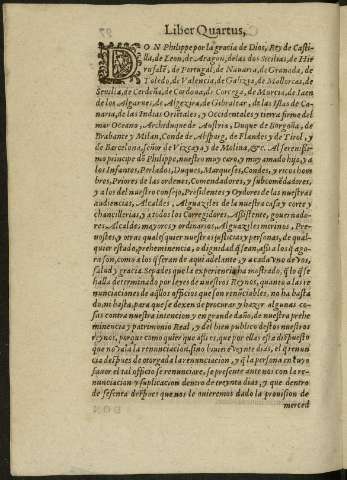 Liber Quartus,
DON Philippe por la gracia de Dios, Rey de Casti-
lla, de Leon, de Aragon, de las dos Sicilias, de Hie
rusalē, de Portugal, de Nauarra, de Granada, de
Toledo, de Valencia, de Galizia, de Mallorcas, de
Seuilla, de Cerdeña, de Cordoua, de Corcega, de Murcia, de Iaen
de los Algarues, de Algezira, de Gibraltar, de las Islas de Ca-
naria, de las Indias Oriētales, y Occidentales, y tierra firme del
mar Oceano, Archeduque de Austria, Duque de Borgoña, de
Brabante y Milan, Conde de Abspurg, de Flandes y de Tirol, y
de Barcelona, señor de Vizcaya y de Molina, &c. Al serenissi-
mo principe dō Philippe, nuestro muy caro, y muy amado hijo, y a
los Infantes, Perlados, Duques, Marqueses, Condes, y ricos hom
bres, Priores de las ordenes, Comendadores, y subcomēdadores,
y a los del nuestro consejo, Presidentes y Oydores de las nuestras
audiencias, Alcaldes, Alguaziles de la nuestra casa y corte y
chancillerias, y a todos los Corregidores, Assistente, gouernado-
res, Alcaldes mayores y ordinarios, Alguaziles merinos, Pre-
uostes, y otras qualesquier nuestras justicias y personas, de qual-
quier estado, preheminencia, o dignidad q̃ sean, assi a los q̃ ago-
ra son, como a los q̃ seran de aqui adelante, y a cada vno de vos,
salud y gracia. Sepades que la experiencia ha mostrado, q̃ lo q̃ se
halla determinado por leyes de nuestros Reynos, quanto a las re
nunciaciones de aq̃llos officios que son renūciables, no ha basta
do, ni basta, para que se dexen de procurar y hazer algunas co-
sas contra nuestra intencion y en grande daño, de nuestra prehe
minencia y patrimonio Real, y del bien publico destos nuestros
reynos, porque como quier que assi es, que por ellas esta dispuesto
que no vala la renunciacion, sino biuiere veynte dias, el q̃ renū
cia despues de otorgada la renunciacion, y q̃ la persona en cuyo
fauor el tal officio se renunciare, se presente ante nos con la re-
nunciacion y suplicacion dentro de treynta dias, y que dentro
de sesenta despues que nos le quieremos dado la prouision de
merced